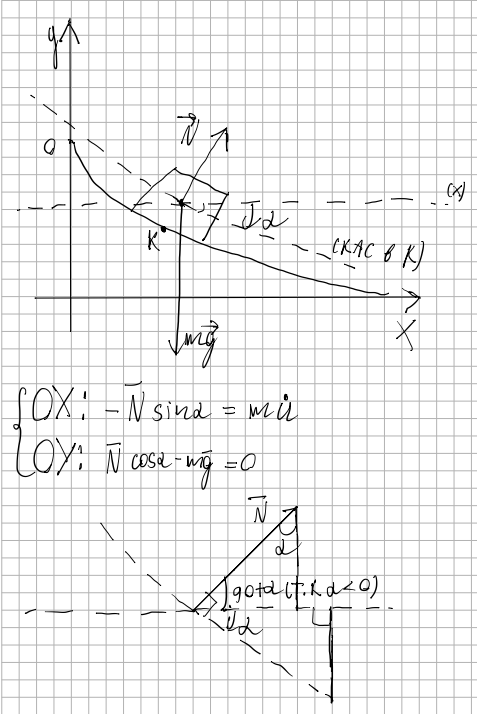 y
N⃗
O
(x)
α
K
(КАС в К)
X
mg⃗
{OX: -N̄ sinα = mu̇
OY: N̄ cosα - mḡ = 0
N̄
α
90+α (т.к α<0)
α